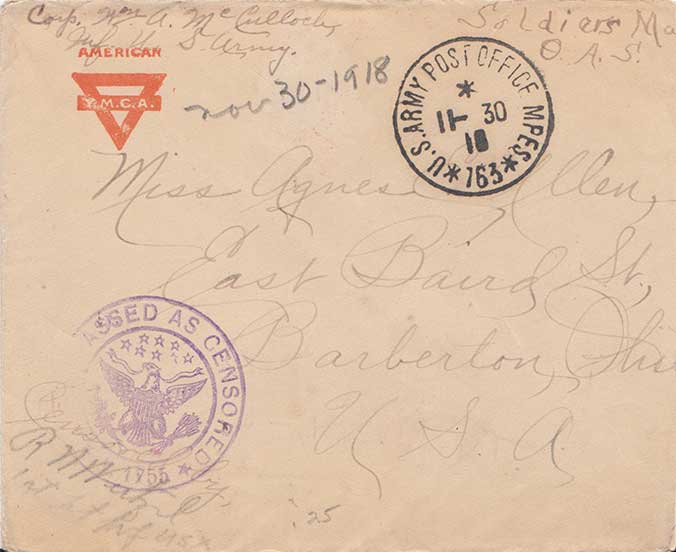 Corp. Wm A. McCulloch,
Inf. U. S. Army.
Soldiers Ma
O. A. S.
AMERICAN
Y.M.C.A.
nov 30-1918
U.S. ARMY POST OFFICE MPES.
11- 30
18
*763*
Miss Agnes Allen,
East Baird St,
Barberton, Ohio
U. S. A.
ASSED AS CENSORED
1755
Censored by,
R W
1st Lt Inf USA
25